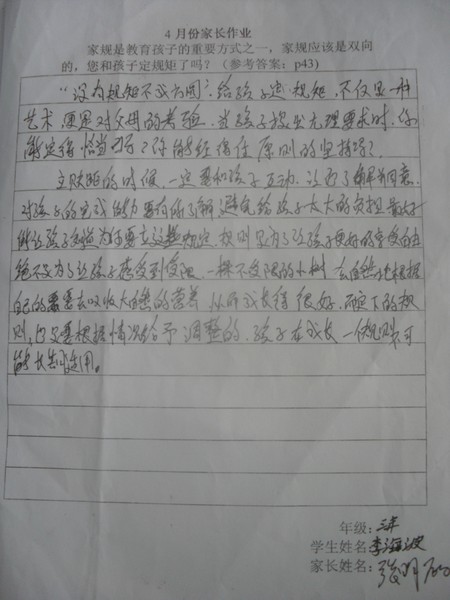 4月份家长作业
家规是教育孩子的重要方式之一，家规应该是双向
的，您和孩子定规矩了吗？（参考答案：p43）
“没有规矩不成方圆”，给孩子定规矩，不仅是一种
艺术，更是对父母的考验，当孩子提出无理要求时，你
能定得恰当吗？你能经得住原则的坚持吗？
立规矩的时候，一定要和孩子互动，让孩子了解并同意，
对孩子的完成能力要有所了解，避免给孩子太大的负担，最好
能让孩子知道为什么要立这些规定，规则是为了让孩子更好的享受自由
绝不是为了让孩子感受到受限，一棵不受限的小树，在自然地根据
自己的需要去吸收大自然的营养，从而成长得很好，而定下的规
则，也是要根据情况给予调整的，孩子在成长，一份规则不可
能长期适用。
年级：三年
学生姓名：李海波
家长姓名：